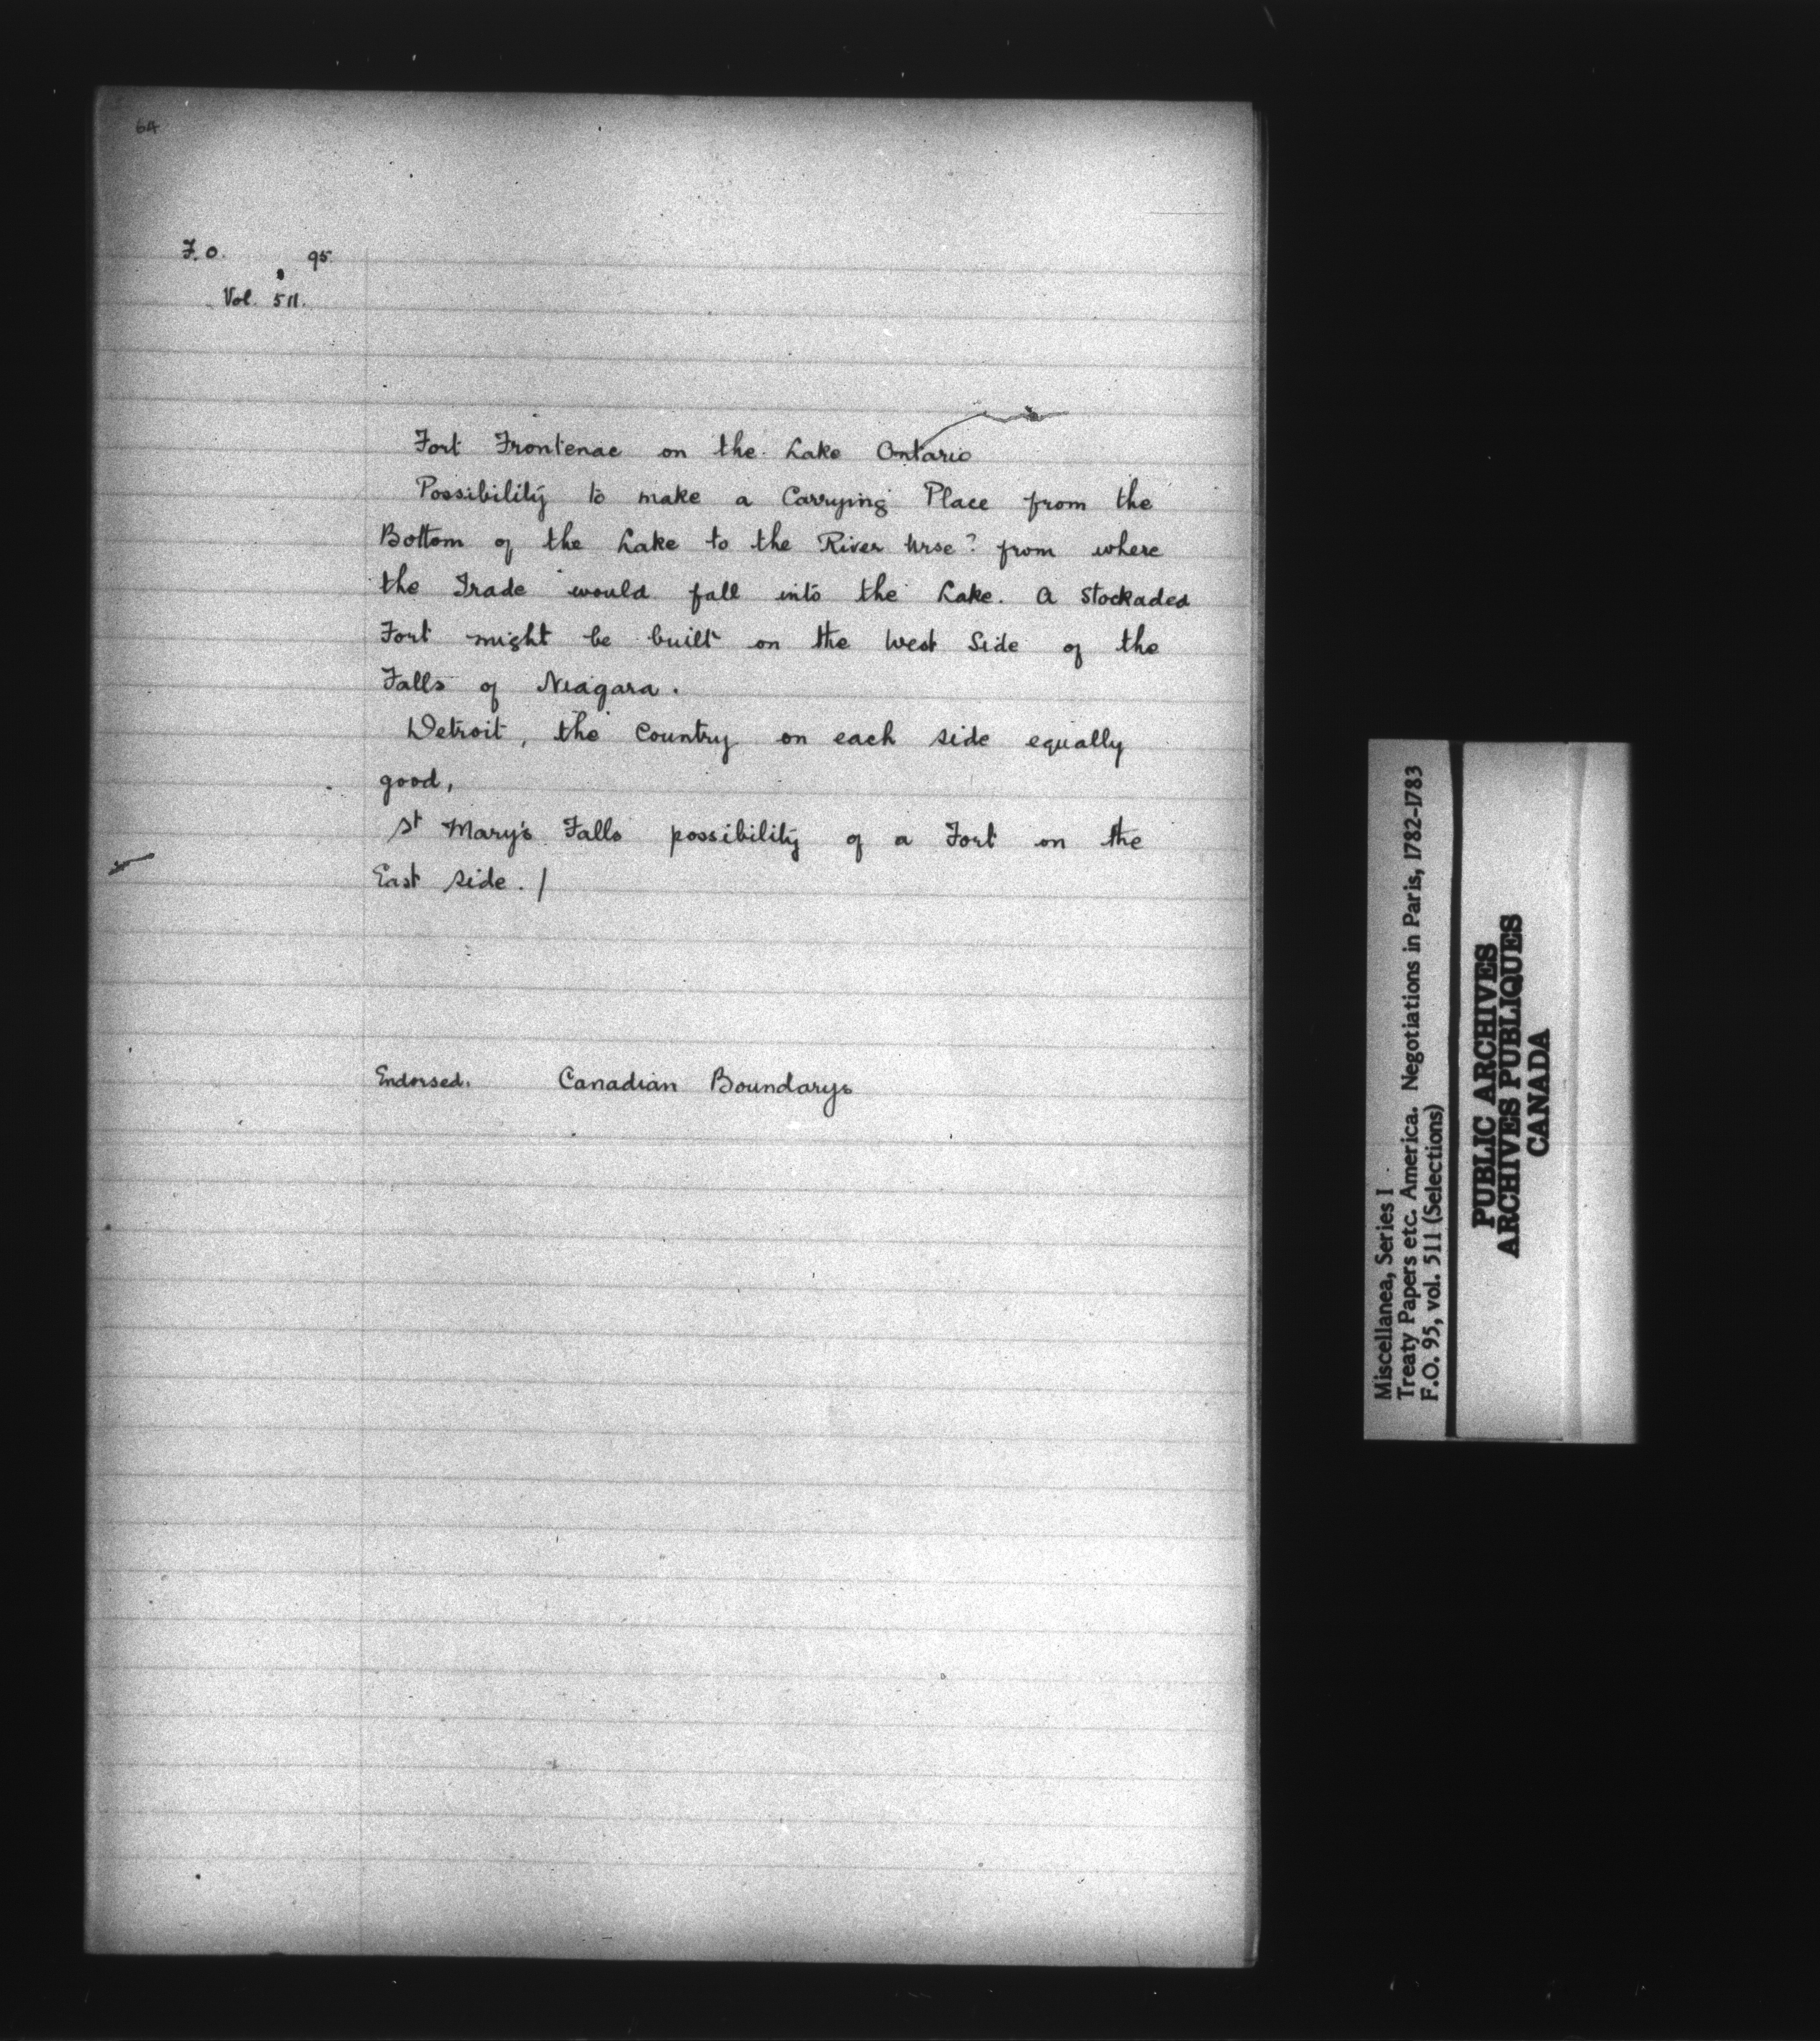 64
F.O. 95
Vol. 511.
Fort Frontenac on the Lake Ontario
Possibility to make a Carrying Place from the
Bottom of the Lake to the River Urse? from where
the Trade would fall into the Lake. A stockaded
Fort might be built on the West Side of the
Falls of Niagara.
Detroit, the Country on each side equally
good,
St Mary's Falls possibility of a Fort on the
East side. /
Endorsed. Canadian Boundarys
Miscellanea, Series I
Treaty Papers etc. America. Negotiations in Paris, 1782-1783
F.O. 95, vol. 511 (Selections)
PUBLIC ARCHIVES
ARCHIVES PUBLIQUES
CANADA